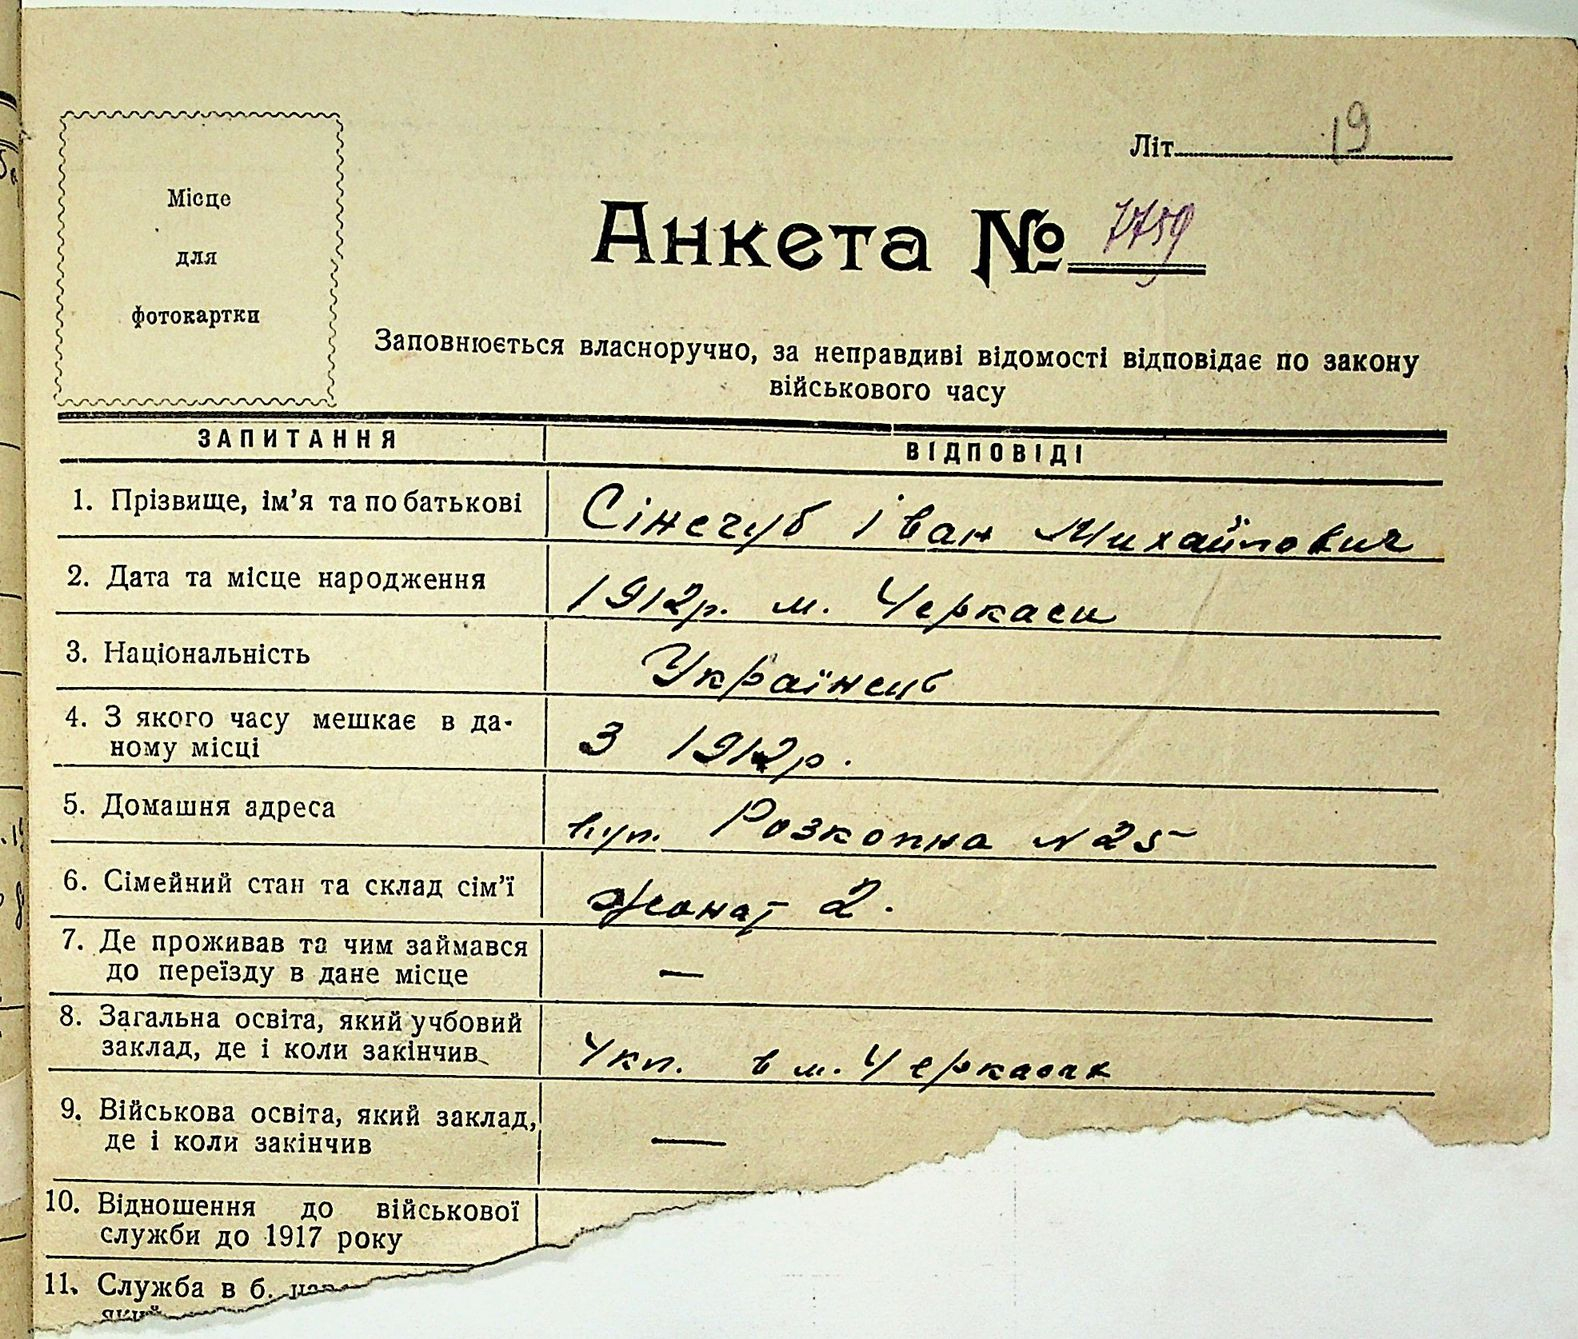 Місце
для
фотокартки
Літ. 19
Анкета № 7759
Заповнюється власноручно, за неправдиві відомості відповідає по закону
військового часу
ЗАПИТАННЯ ВІДПОВІДІ
1. Прізвище, ім'я та по батькові Сінегуб Іван Михайлович
2. Дата та місце народження 1912р. м. Черкаси
3. Національність Українець
4. З якого часу мешкає в да-
ному місці З 1912р.
5. Домашня адреса вул. Розкопна N 25
6. Сімейний стан та склад сім'ї жонат 2.
7. Де проживав та чим займався
до переїзду в дане місце —
8. Загальна освіта, який учбовий
заклад, де і коли закінчив 4кл. в м. Черкасах
9. Військова освіта, який заклад,
де і коли закінчив —
10. Відношення до військової
служби до 1917 року
11. Служба в б.
який